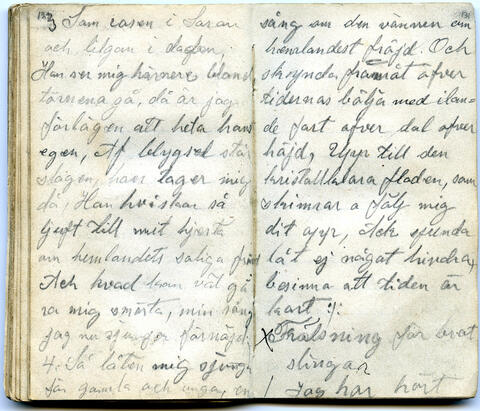 132
3 Som rosen i Saron
och liljan i dalen.
Han ser mig härnere bland
törnena gå, då är jag
förlägen att heta hans
egen, Af blygsel står
slagen, hvar tager mig
då, Han hviskar så
ljuft till mit hjerta
om hemlandets saliga
Ack hvad kan väl gö
ra mig smärta, min sång
jag nu sjunger förnöjd
4. Så låten mig sjunga
för gamla och unga, en
sång om den vännen om
hemlandest fröjd. Och
skynda framåt öfver
tidernas bölja med ilan-
de fart öfver dal öfver
höjd, Upp till den
kristallklara floden, som
skimrar o följ mig
dit opp, Ack
låt ej något hindra,
besinna att tiden är
kort :/:
x Frälsning för brot
slingar
1 Jag har hört